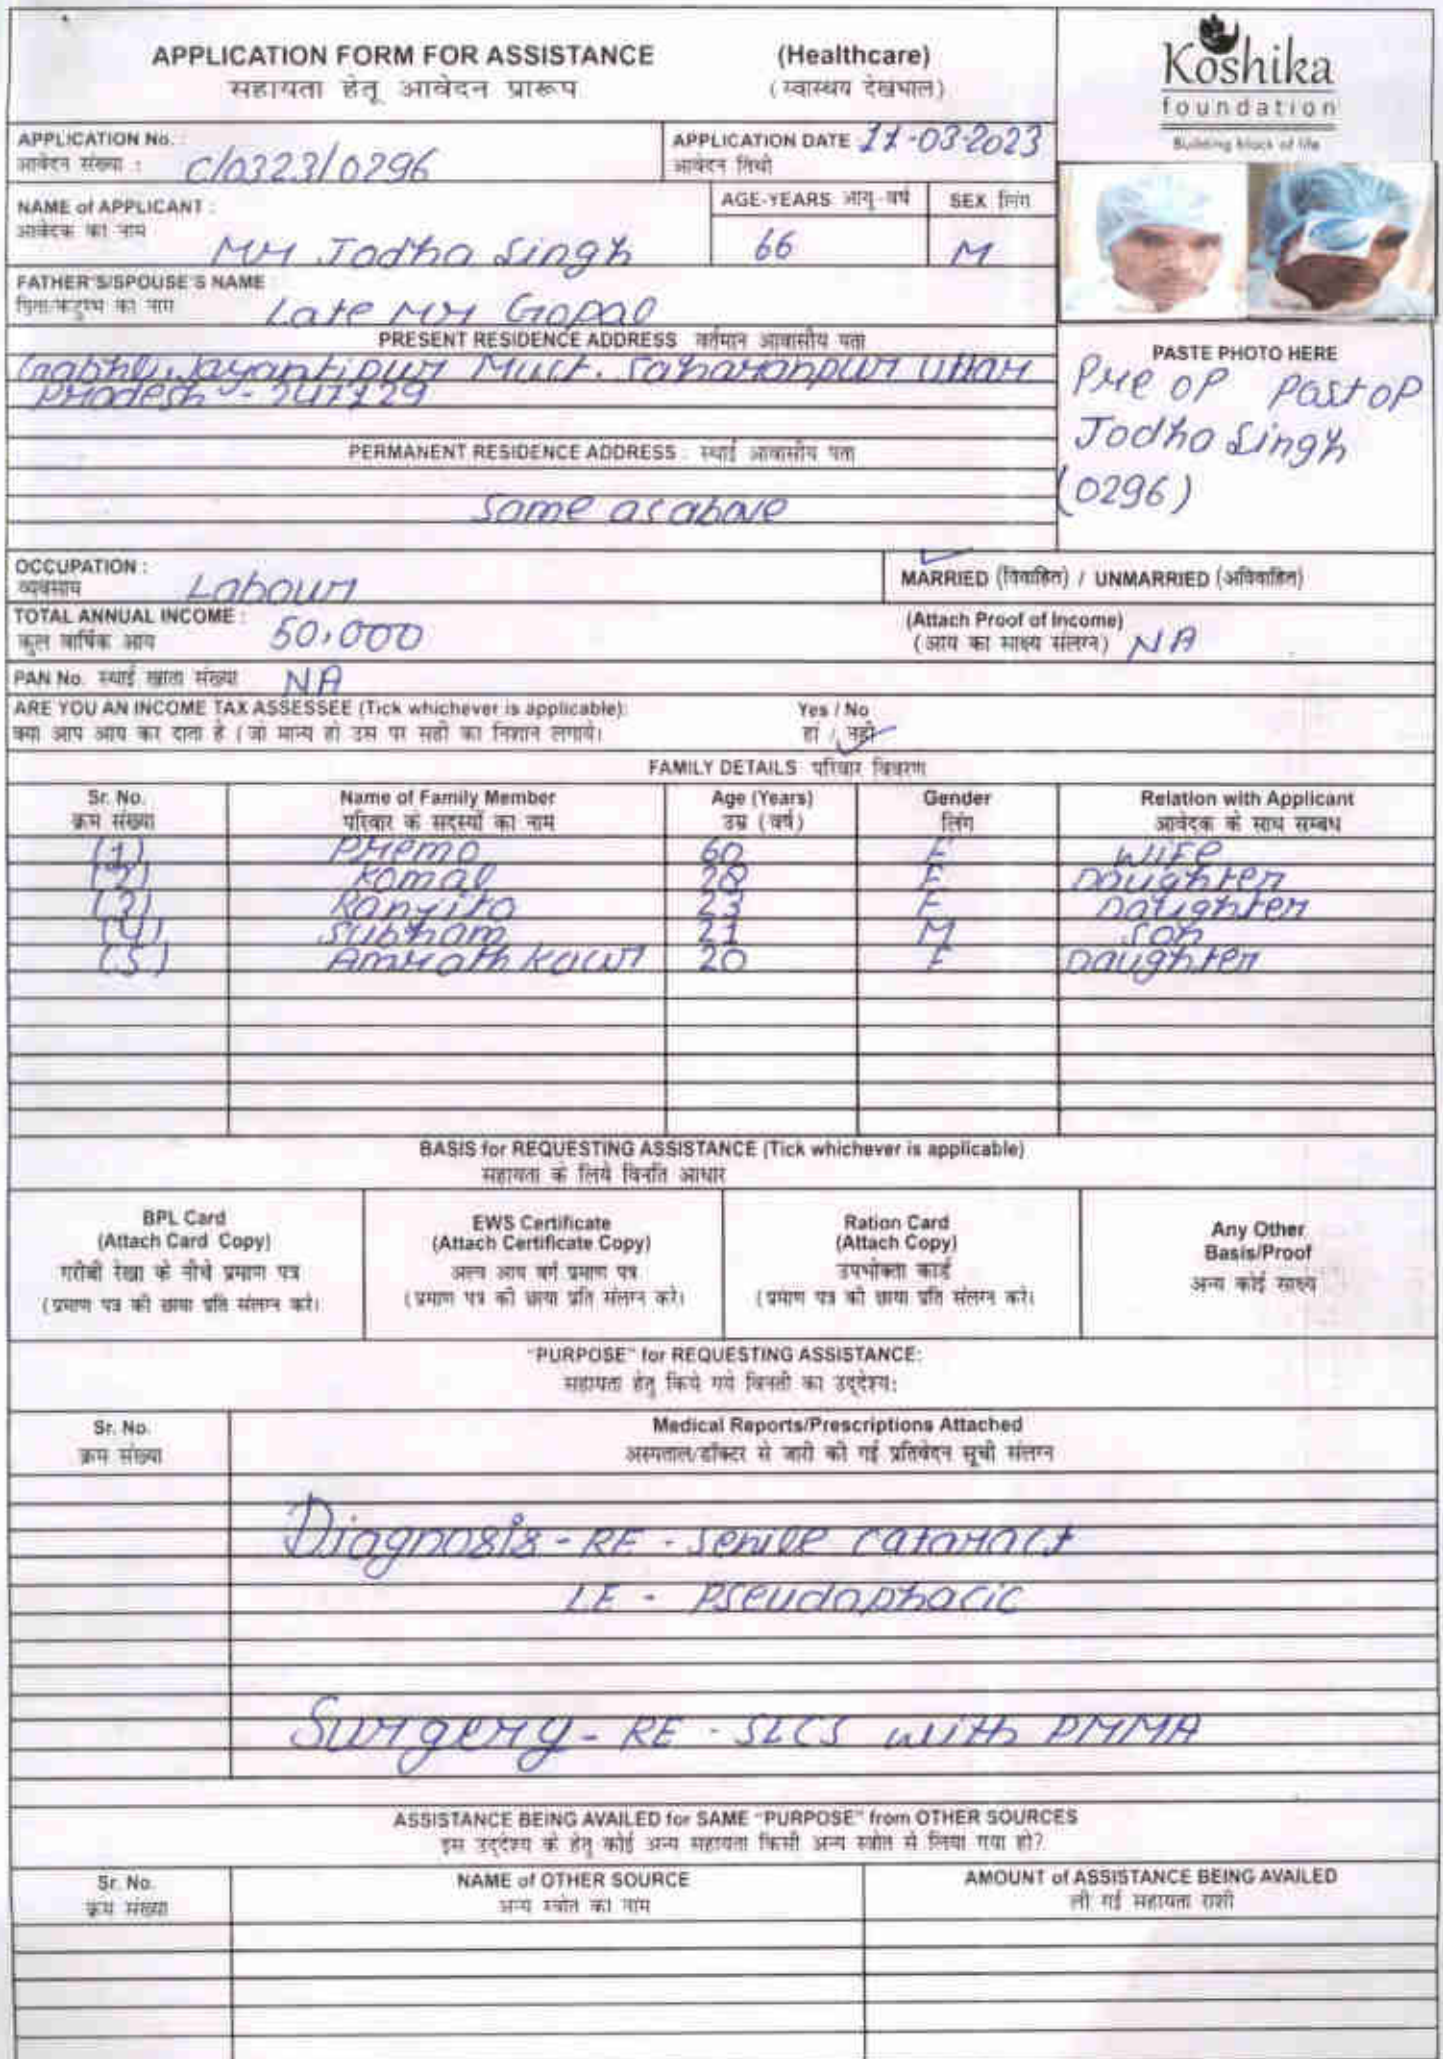 APPLICATION FORM FOR ASSISTANCE (Healthcare)
सहायता हेतू आवेदन प्रारूप (स्वास्थय देखभाल)
Koshika
foundation
Building block of life
APPLICATION No. :
आवेदन संख्या : C/0323/0296
APPLICATION DATE 11-03-2023
आवेदन तिथी
NAME of APPLICANT :
आवेदक का नाम
Mr Jodha Singh
AGE-YEARS आयु-वर्ष
66
SEX लिंग
M
FATHER'S/SPOUSE'S NAME
पिता/कटुम्ब का नाम
Late Mr Gopal
PRESENT RESIDENCE ADDRESS वर्तमान आवासीय पता
Jayantipur Must. Saharanpur Uttar
Pradesh - 247129
PASTE PHOTO HERE
Pre OP Post OP
Jodha Singh
(0296)
PERMANENT RESIDENCE ADDRESS : स्थाई आवासीय पता
Same as above
OCCUPATION :
व्यवसाय
Labour
MARRIED (विवाहित) / UNMARRIED (अविवाहित)
TOTAL ANNUAL INCOME :
कुल वार्षिक आय
50,000
(Attach Proof of Income)
(आय का साक्ष्य संलग्न) NA
PAN No. स्थाई खाता संख्या NA
ARE YOU AN INCOME TAX ASSESSEE (Tick whichever is applicable): Yes / No
क्या आप आय कर दाता है (जो मान्य हो उस पर सही का निशान लगाये। हां / नही
FAMILY DETAILS परिवार विवरण
Sr. No. Name of Family Member Age (Years) Gender Relation with Applicant
क्रम संख्या परिवार के सदस्यों का नाम उम्र (वर्ष) लिंग आवेदक के साथ सम्बध
(1) Premo 60 F Wife
(2) Komal 28 F Daughter
(3) Ranjita 23 F Daughter
(4) Subham 21 M Son
(5) Amrath Kaur 20 F Daughter
BASIS for REQUESTING ASSISTANCE (Tick whichever is applicable)
सहायता के लिये विनति आधार
BPL Card
(Attach Card Copy)
गरीबी रेखा के नीचे प्रमाण पत्र
(प्रमाण पत्र की छाया प्रति संलग्न करे।
EWS Certificate
(Attach Certificate Copy)
अल्प आय वर्ग प्रमाण पत्र
(प्रमाण पत्र की छाया प्रति संलग्न करे।
Ration Card
(Attach Copy)
उपभोक्ता कार्ड
(प्रमाण पत्र की छाया प्रति संलग्न करे।
Any Other
Basis/Proof
अन्य कोई साक्ष्य
"PURPOSE" for REQUESTING ASSISTANCE:
सहायता हेतु किये गये विनती का उद्देश्य:
Sr. No. Medical Reports/Prescriptions Attached
क्रम संख्या अस्पताल/डॉक्टर से जारी की गई प्रतिवेदन सूची संलग्न
Diagnosis - RE - Senile cataract
LE - Pseudophacic
Surgery - RE - SICS with PMMA
ASSISTANCE BEING AVAILED for SAME "PURPOSE" from OTHER SOURCES
इस उद्देश्य के हेतु कोई अन्य सहायता किसी अन्य स्त्रोत से लिया गया हो?
Sr. No. NAME of OTHER SOURCE AMOUNT of ASSISTANCE BEING AVAILED
क्रम संख्या अन्य स्त्रोत का नाम ली गई सहायता राशी